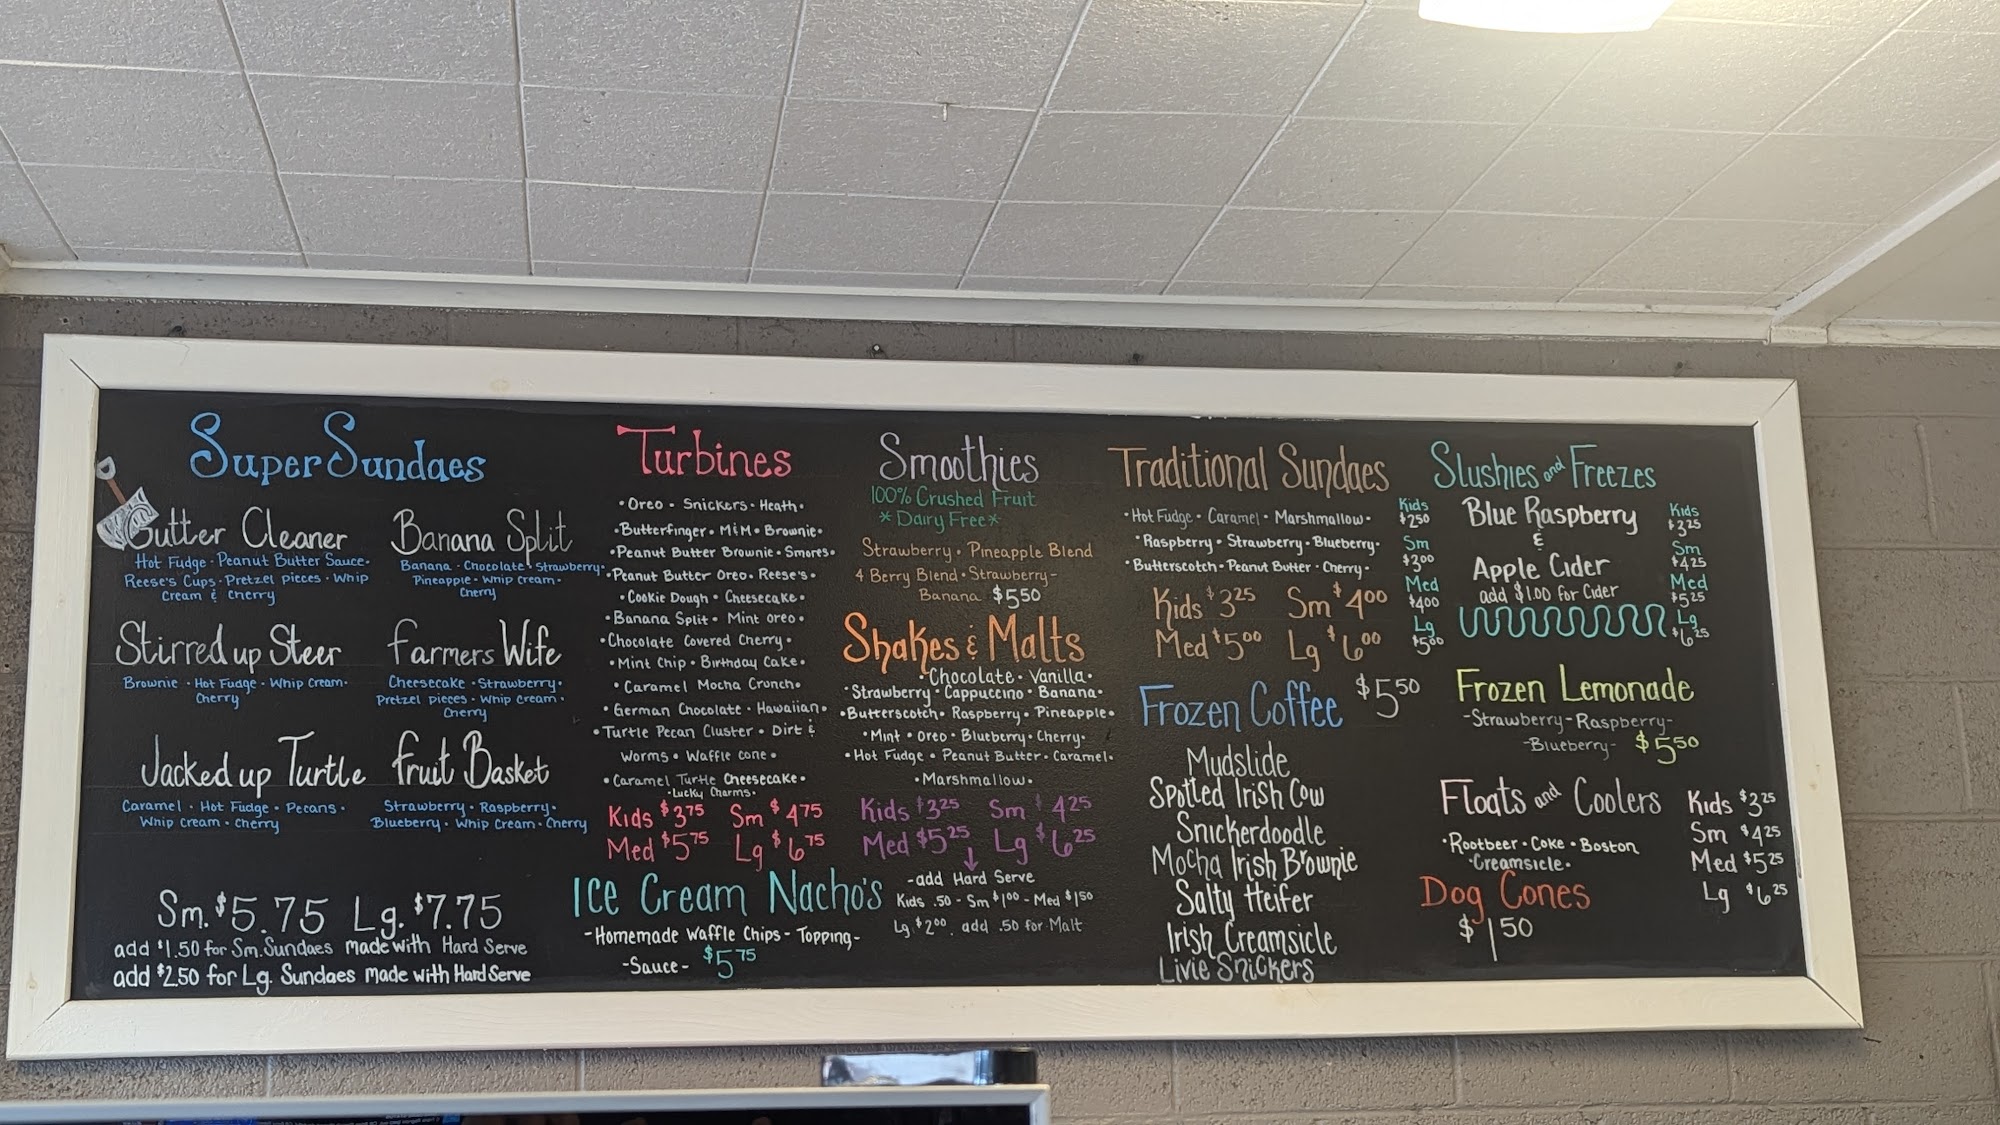 Super Sundaes
Gutter Cleaner
Hot Fudge · Peanut Butter Sauce ·
Reese's Cups · Pretzel pieces · Whip
Cream & Cherry
Banana Split
Banana · Chocolate · Strawberry ·
Pineapple · Whip Cream ·
Cherry
Stirred up Steer
Brownie · Hot Fudge · Whip Cream ·
Cherry
Farmers Wife
Cheesecake · Strawberry ·
Pretzel pieces · Whip Cream ·
Cherry
Jacked up Turtle
Caramel · Hot Fudge · Pecans ·
Whip Cream · Cherry
Fruit Basket
Strawberry · Raspberry ·
Blueberry · Whip Cream · Cherry
Sm. $5.75 Lg. $7.75
add $1.50 for Sm. Sundaes made with Hard Serve
add $2.50 for Lg. Sundaes made with Hard Serve
Turbines
· Oreo · Snickers · Heath ·
· Butterfinger · M&M · Brownie ·
· Peanut Butter Brownie · Smores ·
· Peanut Butter Oreo · Reese's ·
· Cookie Dough · Cheesecake ·
· Banana Split · Mint Oreo ·
· Chocolate Covered Cherry ·
· Mint Chip · Birthday Cake ·
· Caramel Mocha Crunch ·
· German Chocolate · Hawaiian ·
· Turtle Pecan Cluster · Dirt &
Worms · Waffle Cone ·
· Caramel Turtle Cheesecake ·
· Lucky Charms ·
Kids $3.75 Sm $4.75
Med $5.75 Lg $6.75
Ice Cream Nacho's
- Homemade Waffle Chips - Topping -
- Sauce - $5.75
Smoothies
100% Crushed Fruit
* Dairy Free *
Strawberry · Pineapple Blend
4 Berry Blend · Strawberry -
Banana $5.50
Shakes & Malts
· Chocolate · Vanilla ·
· Strawberry · Cappuccino · Banana ·
· Butterscotch · Raspberry · Pineapple ·
· Mint · Oreo · Blueberry · Cherry ·
· Hot Fudge · Peanut Butter · Caramel ·
· Marshmallow ·
Kids $3.25 Sm $4.25
Med $5.25 Lg $6.25
- add Hard Serve
Kids .50 - Sm $1.00 - Med $1.50
Lg $2.00. add .50 for Malt
Traditional Sundaes
· Hot Fudge · Caramel · Marshmallow ·
· Raspberry · Strawberry · Blueberry ·
· Butterscotch · Peanut Butter · Cherry ·
Kids $3.25 Sm $4.00
Med $5.00 Lg $6.00
Frozen Coffee $5.50
Mudslide
Spotted Irish Cow
Snickerdoodle
Mocha Irish Brownie
Salty Heifer
Irish Creamsicle
Livie Snickers
Slushies and Freezes
Kids
$2.50
Sm
$3.00
Med
$4.00
Lg
$5.00
Blue Raspberry
&
Apple Cider
add $1.00 for Cider
Kids
$3.25
Sm
$4.25
Med
$5.25
Lg
$6.25
Frozen Lemonade
- Strawberry - Raspberry -
- Blueberry - $5.50
Floats and Coolers
· Rootbeer · Coke · Boston
· Creamsicle ·
Kids $3.25
Sm $4.25
Med $5.25
Lg $6.25
Dog Cones
$1.50